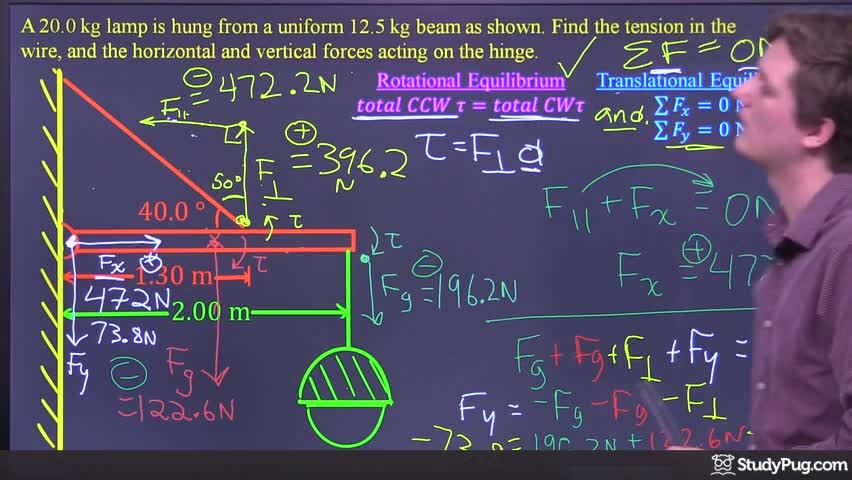 A 20.0 kg lamp is hung from a uniform 12.5 kg beam as shown. Find the tension in the
wire, and the horizontal and vertical forces acting on the hinge.
ΣF = 0N
Rotational Equilibrium
total CCW τ = total CW τ
Translational Equi
and.
∑ Fx = 0 N
∑ Fy = 0 N
⊖ = 472.2N
F||
⊕ = 396.2 N
F⊥
50°
τ = F⊥ d
40.0 °
τ
F|| + Fx = 0N
Fx ⊕ = 47
τ
τ
Fx ⊕
1.30 m
472N
Fg ⊖ = 196.2N
2.00 m
73.8N
Fy
Fg
⊖ = 122.6N
Fg + Fg + F⊥ + Fy =
Fy = -Fg -Fg -F⊥
StudyPug.com